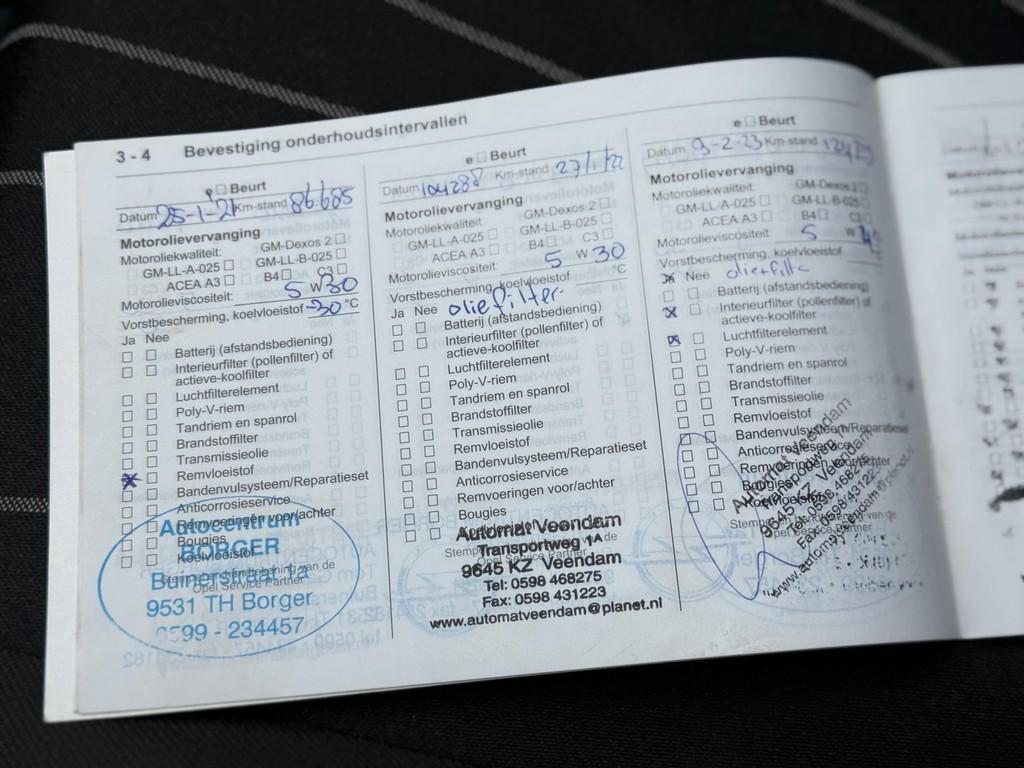 3 - 4 Bevestiging onderhoudsintervallen
e □ Beurt
Datum 25-1-21 Km-stand 86.685
Motorolievervanging
Motoroliekwaliteit: GM-Dexos 2 □
GM-LL-A-025 □ GM-LL-B-025 □
ACEA A3 □ B4 □ C3 □
Motorolieviscositeit: 5 W 30
Vorstbescherming, koelvloeistof -30 °C
Ja Nee
□ □ Batterij (afstandsbediening)
□ □ Interieurfilter (pollenfilter) of
actieve-koolfilter
□ □ Luchtfilterelement
□ □ Poly-V-riem
□ □ Tandriem en spanrol
□ □ Brandstoffilter
□ □ Transmissieolie
☒ □ Remvloeistof
□ □ Bandenvulsysteem/Reparatieset
□ □ Anticorrosieservice
□ □ Remvoeringen voor/achter
□ □ Bougies
□ □ Koelvloeistof
Opel Service Partner
Autocentrum
BORGER
Buinerstraat
9531 TH Borger
0599 - 234457
e □ Beurt
Datum 104288 Km-stand 27/1/22
Motorolievervanging
Motoroliekwaliteit: GM-Dexos 2 □
GM-LL-A-025 □ GM-LL-B-025 □
ACEA A3 □ B4 □ C3 □
Motorolieviscositeit: 5 W 30
Vorstbescherming, koelvloeistof °C
Ja Nee oliefilter
□ □ Batterij (afstandsbediening)
□ □ Interieurfilter (pollenfilter) of
actieve-koolfilter
□ □ Luchtfilterelement
□ □ Poly-V-riem
□ □ Tandriem en spanrol
□ □ Brandstoffilter
□ □ Transmissieolie
□ □ Remvloeistof
□ □ Bandenvulsysteem/Reparatieset
□ □ Anticorrosieservice
□ □ Remvoeringen voor/achter
□ □ Bougies
Automat Veendam
Transportweg 1A
9645 KZ Veendam
Tel: 0598 468275
Fax: 0598 431223
www.automatveendam@planet.nl
e □ Beurt
Datum 9-2-23 Km-stand
Motorolievervanging
Motoroliekwaliteit: GM-Dexos 2 □
GM-LL-A-025 □ GM-LL-B-025 □
ACEA A3 □ B4 □
Motorolieviscositeit: 5 W
Vorstbescherming, koelvloeistof
Nee
□ □ Batterij (afstandsbediening)
☒ □ Interieurfilter (pollenfilter) of
actieve-koolfilter
☒ □ Luchtfilterelement
□ □ Poly-V-riem
□ □ Tandriem en spanrol
□ □ Brandstoffilter
□ □ Transmissieolie
□ □ Remvloeistof
□ □ Bandenvulsysteem/Reparatieset
□ □ Anticorrosieservice
□ □ Remvoeringen voor/achter
□ □ Bougies
Opel Service Partner
Automat Veendam
Transportweg
9645 KZ Veendam
Tel: 0598 46827
Fax: 0598 43122